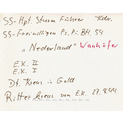 SS-Hpt. Sturm Führer Kdr.
SS-Freiwilligen Pz. Gr. BH. 54
"Nederland" Wanhöfer
E.K. II
E.K. I
Dt. Kreuz in Gold
Ritter Kreuz vom E.K. 27.8.44